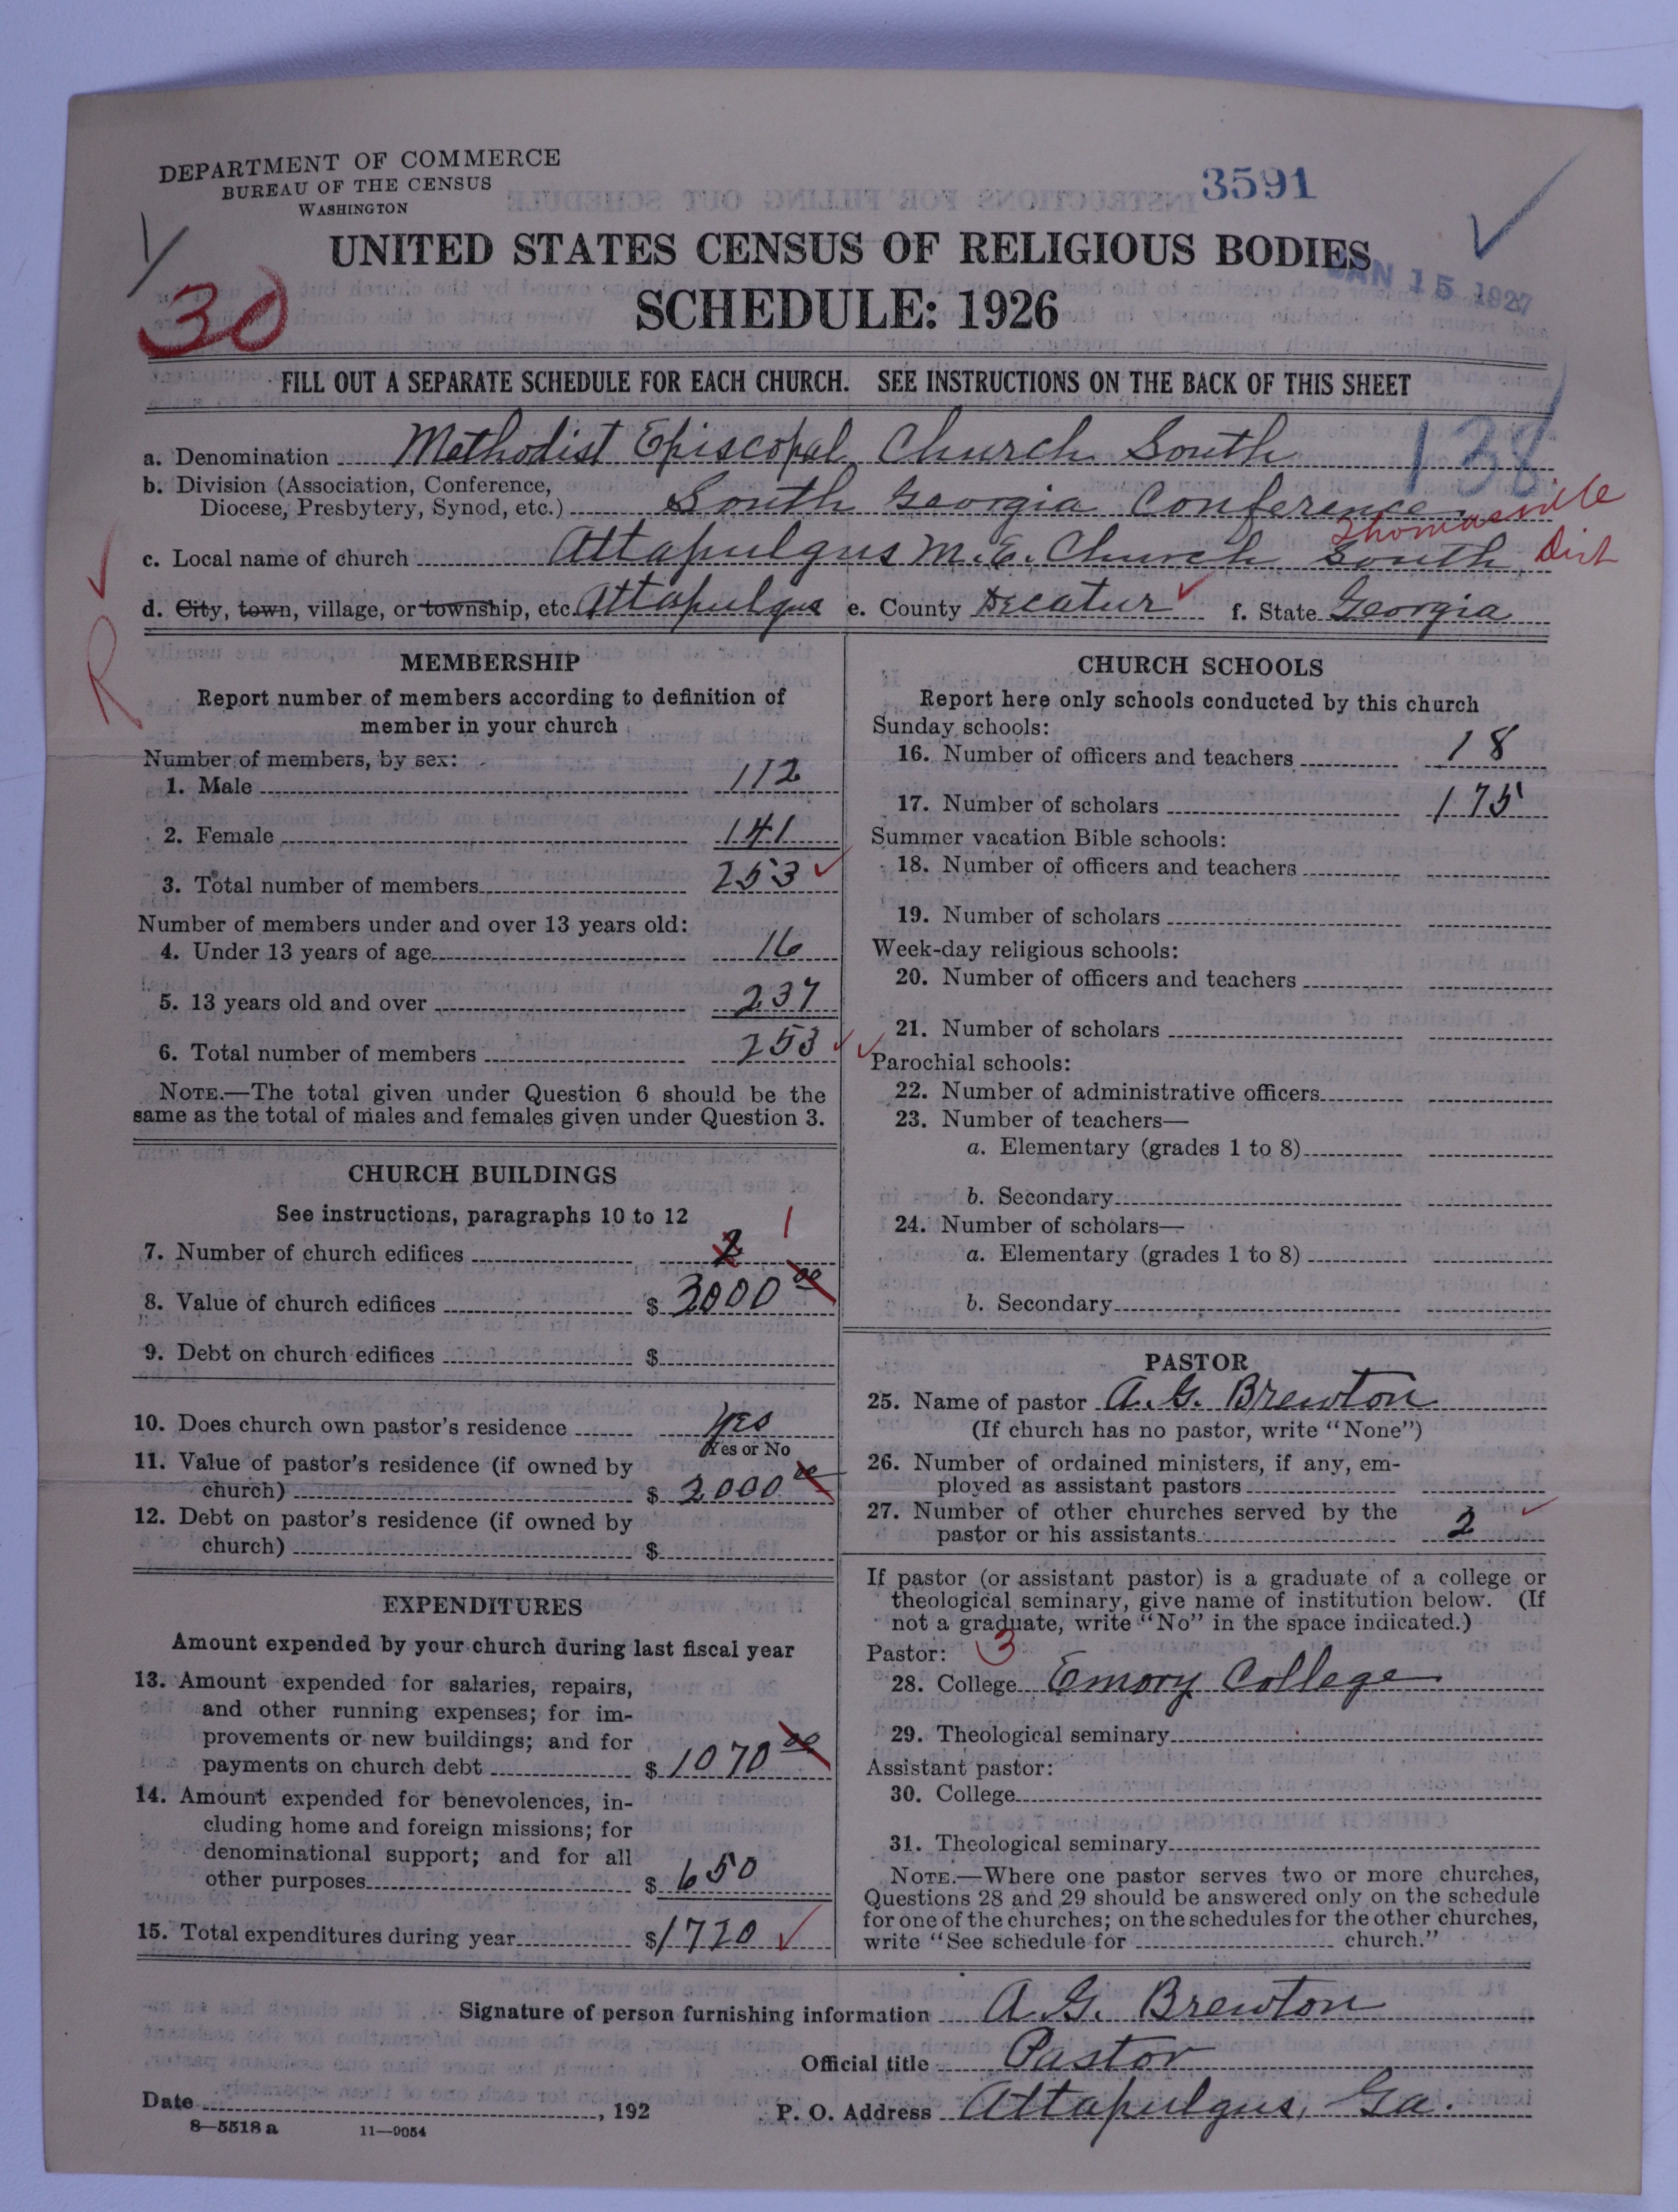 DEPARTMENT OF COMMERCE
BUREAU OF THE CENSUS
WASHINGTON
3591
UNITED STATES CENSUS OF RELIGIOUS BODIES
SCHEDULE: 1926
JAN 15 1927
30
FILL OUT A SEPARATE SCHEDULE FOR EACH CHURCH. SEE INSTRUCTIONS ON THE BACK OF THIS SHEET
138
a. Denomination Methodist Episcopal Church South
b. Division (Association, Conference,
Diocese, Presbytery, Synod, etc.) South Georgia Conference
Thomasville
Dist
c. Local name of church Attapulgus M.E. Church South
d. City, town, village, or township, etc. Attapulgus e. County Decatur f. State Georgia
R
MEMBERSHIP
Report number of members according to definition of
member in your church
Number of members, by sex:
1. Male 112
2. Female 141
3. Total number of members 253
Number of members under and over 13 years old:
4. Under 13 years of age 16
5. 13 years old and over 237
6. Total number of members 253
NOTE.—The total given under Question 6 should be the
same as the total of males and females given under Question 3.
CHURCH BUILDINGS
See instructions, paragraphs 10 to 12
7. Number of church edifices 2 1
8. Value of church edifices $ 3000 00
9. Debt on church edifices $
10. Does church own pastor's residence Yes
Yes or No
11. Value of pastor's residence (if owned by
church) $ 2000 00
12. Debt on pastor's residence (if owned by
church) $
EXPENDITURES
Amount expended by your church during last fiscal year
13. Amount expended for salaries, repairs,
and other running expenses; for im-
provements or new buildings; and for
payments on church debt $ 1070 00
14. Amount expended for benevolences, in-
cluding home and foreign missions; for
denominational support; and for all
other purposes $ 650
15. Total expenditures during year $ 1720
CHURCH SCHOOLS
Report here only schools conducted by this church
Sunday schools:
16. Number of officers and teachers 18
17. Number of scholars 175
Summer vacation Bible schools:
18. Number of officers and teachers
19. Number of scholars
Week-day religious schools:
20. Number of officers and teachers
21. Number of scholars
Parochial schools:
22. Number of administrative officers
23. Number of teachers—
a. Elementary (grades 1 to 8)
b. Secondary
24. Number of scholars—
a. Elementary (grades 1 to 8)
b. Secondary
PASTOR
25. Name of pastor A. G. Brewton
(If church has no pastor, write "None")
26. Number of ordained ministers, if any, em-
ployed as assistant pastors
27. Number of other churches served by the
pastor or his assistants 2
If pastor (or assistant pastor) is a graduate of a college or
theological seminary, give name of institution below. (If
not a graduate, write "No" in the space indicated.)
Pastor: 3
28. College Emory College
29. Theological seminary
Assistant pastor:
30. College
31. Theological seminary
NOTE.—Where one pastor serves two or more churches,
Questions 28 and 29 should be answered only on the schedule
for one of the churches; on the schedules for the other churches,
write "See schedule for church."
Signature of person furnishing information A. G. Brewton
Official title Pastor
Date , 192
P. O. Address Attapulgus, Ga.
8—5518 a 11—9054